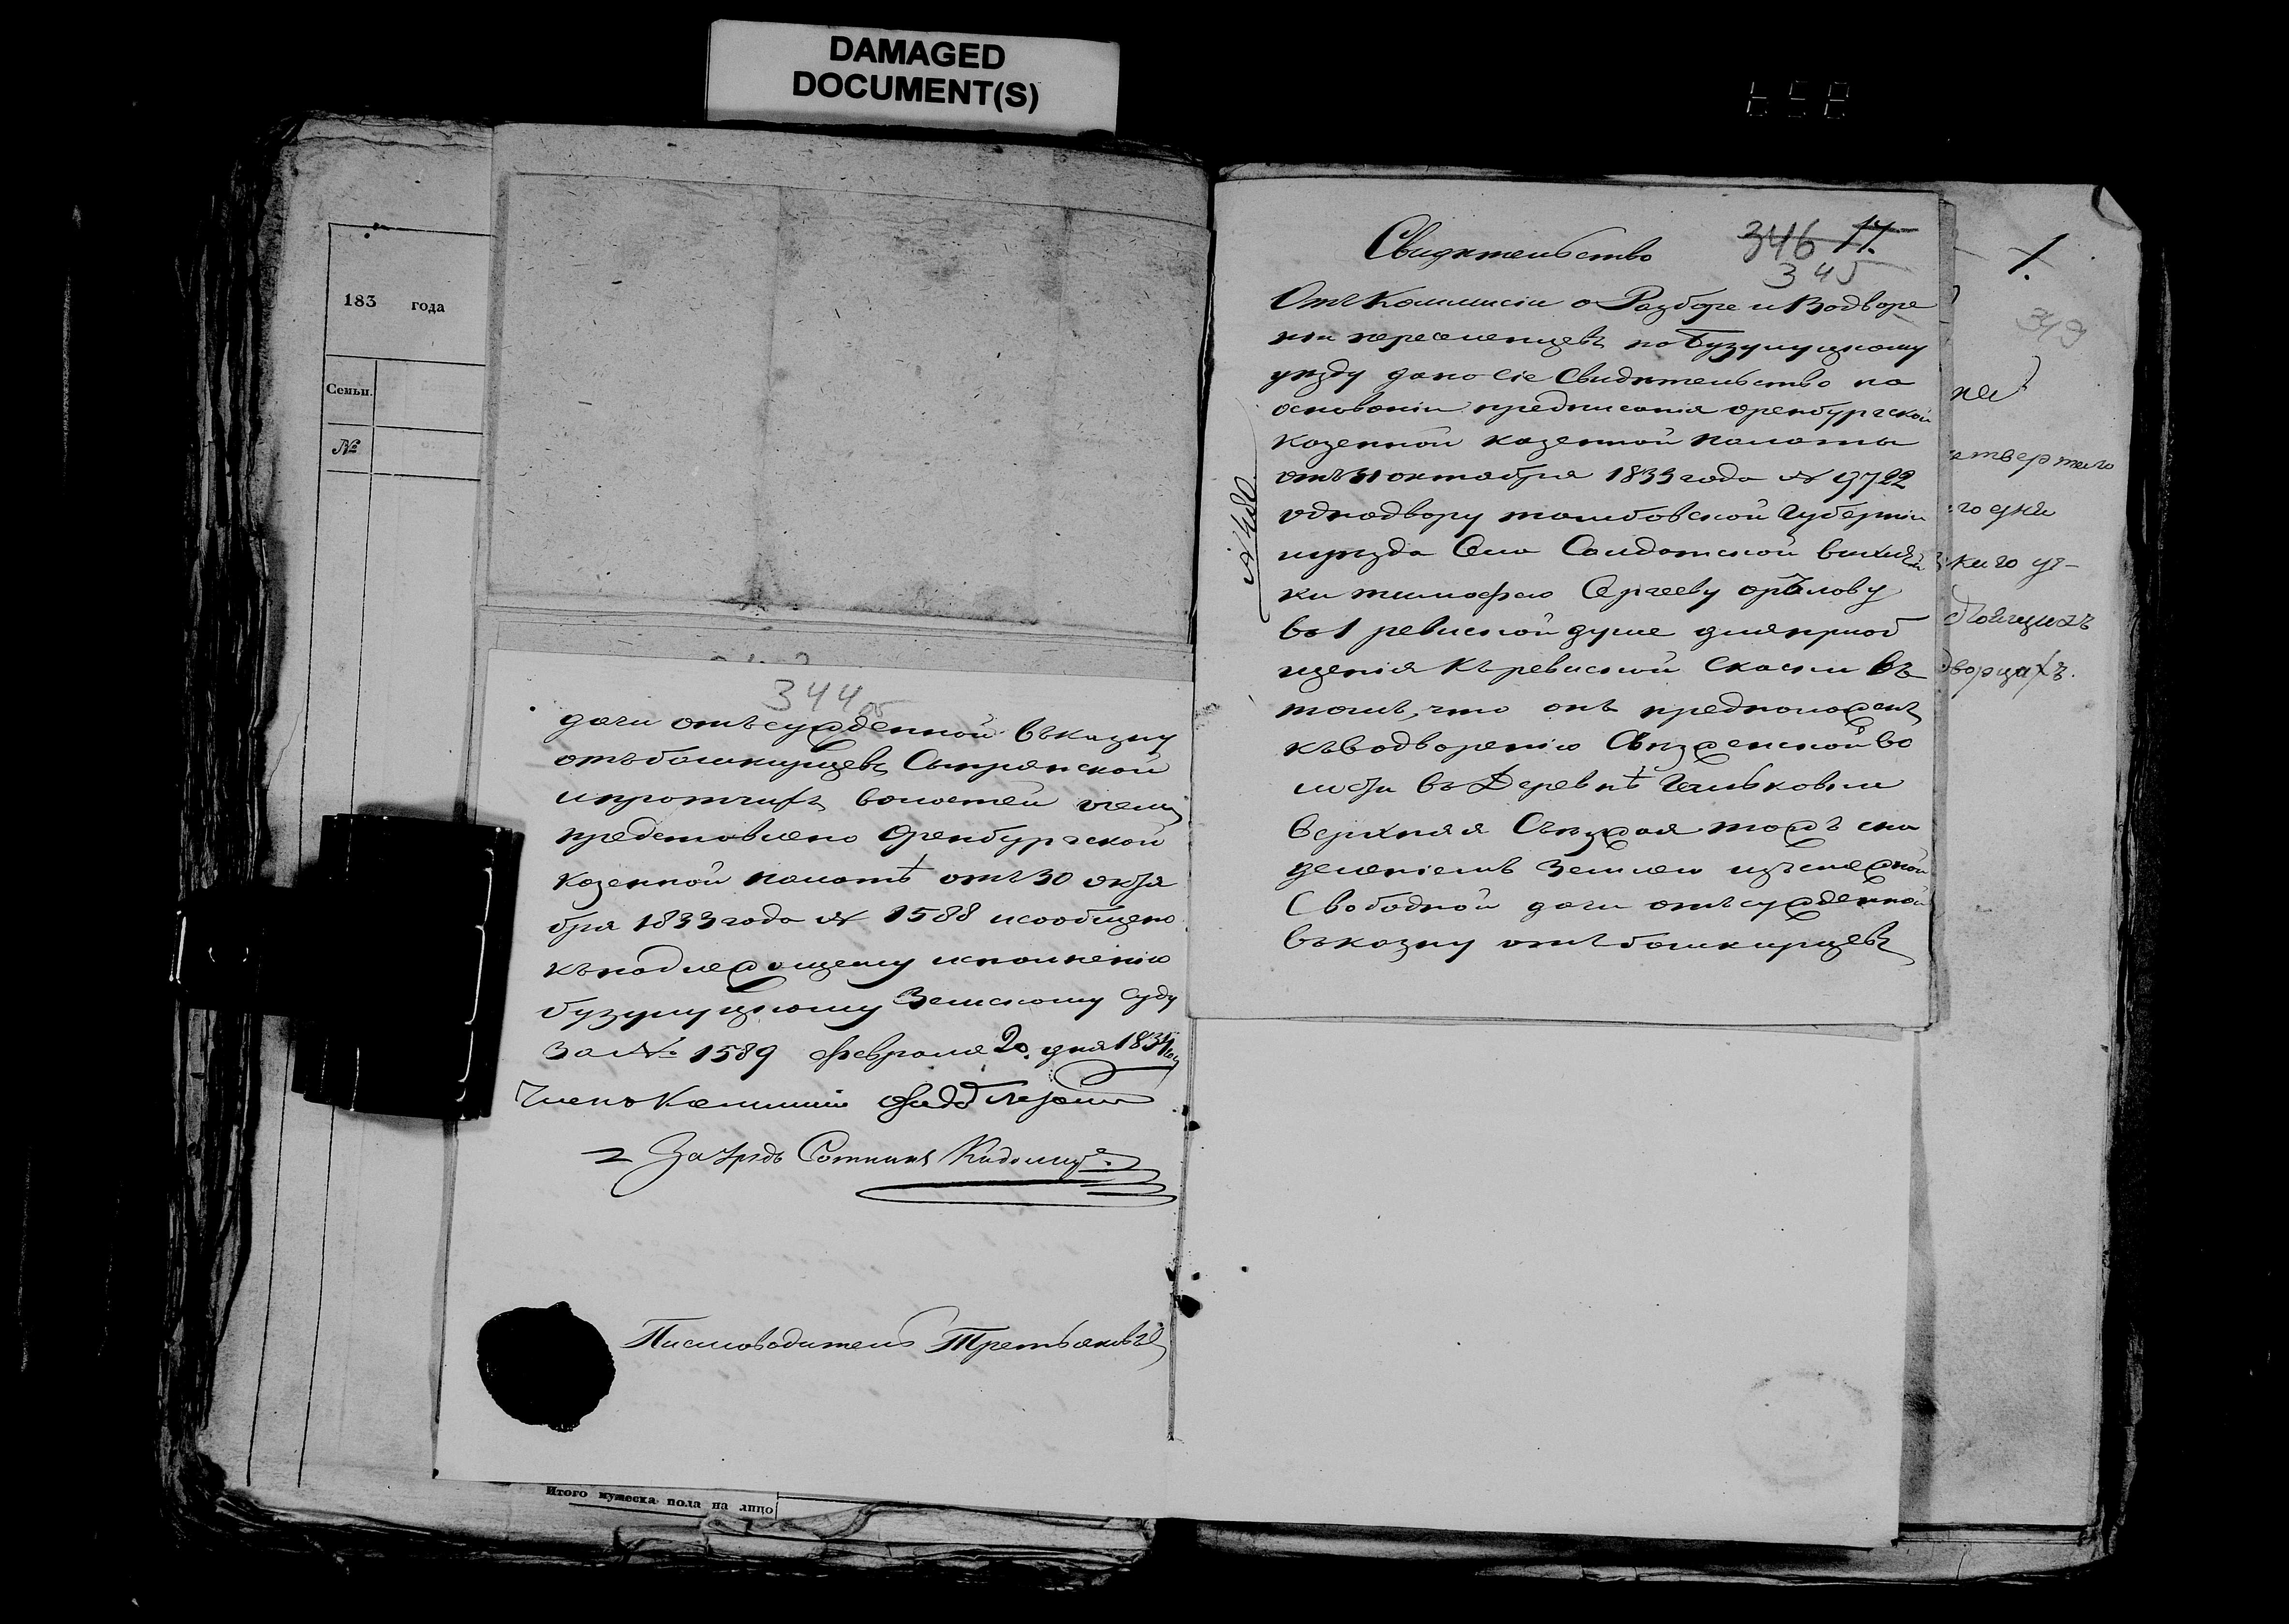 DAMAGED
DOCUMENT(S)
183 года
Семьи.
№
344 об
дачи отъ сужденной въ казну
отъ башкирцевъ
и протчихъ волостей о чемъ
представлено Оренбургской
казенной палатѣ отъ 30 октя
бря 1833 года № 1588 и сообщено
къ надлежащему исполненію
бузулуцкому Земскому суду
За № 1589 февраля 20. дня 1834
Членъ Коммисіи
Сотникъ
Писмоводитель Третьяковъ
Итого мужеска пола на лицо
Свидѣтельство
346 17.
345
Отъ Коммисіи о Разборе и Водворе
нии переселенцевъ по Бузулуцкому
уѣзду дано сіе Свидѣтельство на
основаніи предписанія оренбургской
казенной казенной палаты
отъ 31 октября 1833 года № 9722
однодвору тамбовской Губерніи
и уѣзда Села Солдатской
ки тимофею Сергееву орѣлову
во 1 ревиской душе для приоб
щенія Къ ревиской Скаски въ
томъ, что онъ предположенъ
къ водворенію Съѣзженской во
лости въ Деревнѣ
верхняя Съѣзжая тожъ сна
деленіемъ Землею изъ смежной
Свободной дачи отъ сужденной
въ казну отъ башкирцевъ
1.
349
етвертаго
каго уѣ
дворцахъ.